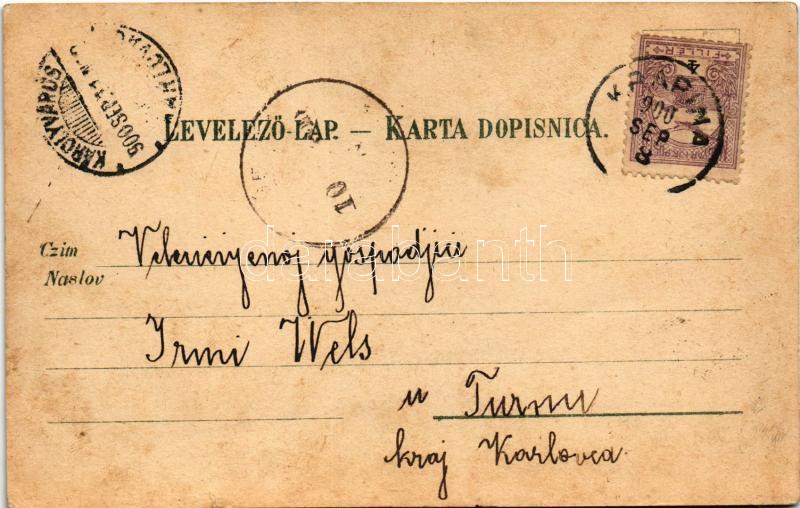 KÁROLYVÁROS
900 SEP. 11
FILLÉR
4
KRAPINA
900
SEP
8
LEVELEZŐ-LAP. — KARTA DOPISNICA.
10
Czim
Naslov
Velecijenoj gospodjici
Irmi Wels
u Turnu
kraj Karlovca.
darabanth